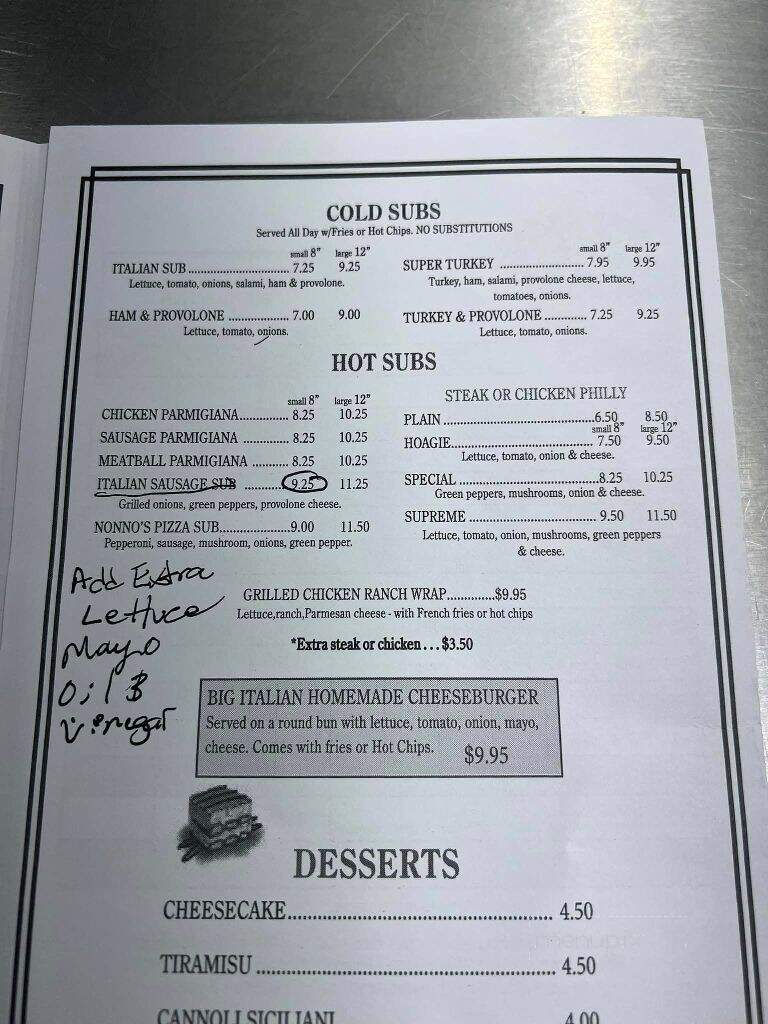 COLD SUBS
Served All Day w/Fries or Hot Chips. NO SUBSTITUTIONS
small 8" large 12"
ITALIAN SUB ........................ 7.25 9.25
Lettuce, tomato, onions, salami, ham & provolone.
HAM & PROVOLONE .................. 7.00 9.00
Lettuce, tomato, onions.
small 8" large 12"
SUPER TURKEY ..................... 7.95 9.95
Turkey, ham, salami, provolone cheese, lettuce,
tomatoes, onions.
TURKEY & PROVOLONE ............. 7.25 9.25
Lettuce, tomato, onions.
HOT SUBS
small 8" large 12"
CHICKEN PARMIGIANA.............. 8.25 10.25
SAUSAGE PARMIGIANA ............. 8.25 10.25
MEATBALL PARMIGIANA .......... 8.25 10.25
ITALIAN SAUSAGE SUB .......... 9.25 11.25
Grilled onions, green peppers, provolone cheese.
NONNO'S PIZZA SUB....................9.00 11.50
Pepperoni, sausage, mushroom, onions, green pepper.
STEAK OR CHICKEN PHILLY
PLAIN ............................................6.50 8.50
small 8" large 12"
HOAGIE......................................... 7.50 9.50
Lettuce, tomato, onion & cheese.
SPECIAL .........................................8.25 10.25
Green peppers, mushrooms, onion & cheese.
SUPREME ..................................... 9.50 11.50
Lettuce, tomato, onion, mushrooms, green peppers
& cheese.
Add Extra
Lettuce
Mayo
Oil &
Vinegar
GRILLED CHICKEN RANCH WRAP..............$9.95
Lettuce,ranch,Parmesan cheese - with French fries or hot chips
*Extra steak or chicken . . . $3.50
BIG ITALIAN HOMEMADE CHEESEBURGER
Served on a round bun with lettuce, tomato, onion, mayo,
cheese. Comes with fries or Hot Chips. $9.95
DESSERTS
CHEESECAKE..................................................... 4.50
TIRAMISU ............................................................ 4.50
CANNOLI SICILIANI 4.00